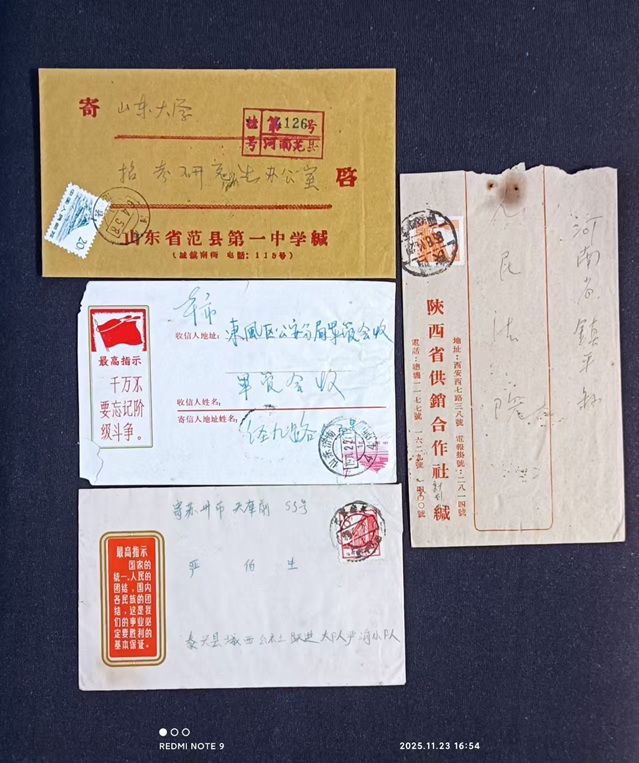 寄 山东大学
挂 第4126号
号 河南范县
招考研究生办公室 启
20
山东省范县第一中学缄
(城信南所 电话:119号)
本市
收信人地址: 東風区公安分局軍管会收
最高指示
千万不
要忘记阶
级斗争。
收信人姓名: 軍管会收
寄信人地址姓名: 经九路
寄苏州市 天库前 55号
最高指示
国家的
统一,人民的
团结,国内
各民族的团
结,这是我
们的事业必
定要胜利的
基本保证。
严 伯 生
泰兴县
河南省鎮平和
人民法院
地址:西安西七路三八號 電報掛號:二八一四號
陝西省供銷合作社 缄
電話:總機二一七七號
REDMI NOTE 9
2025.11.23 16:54